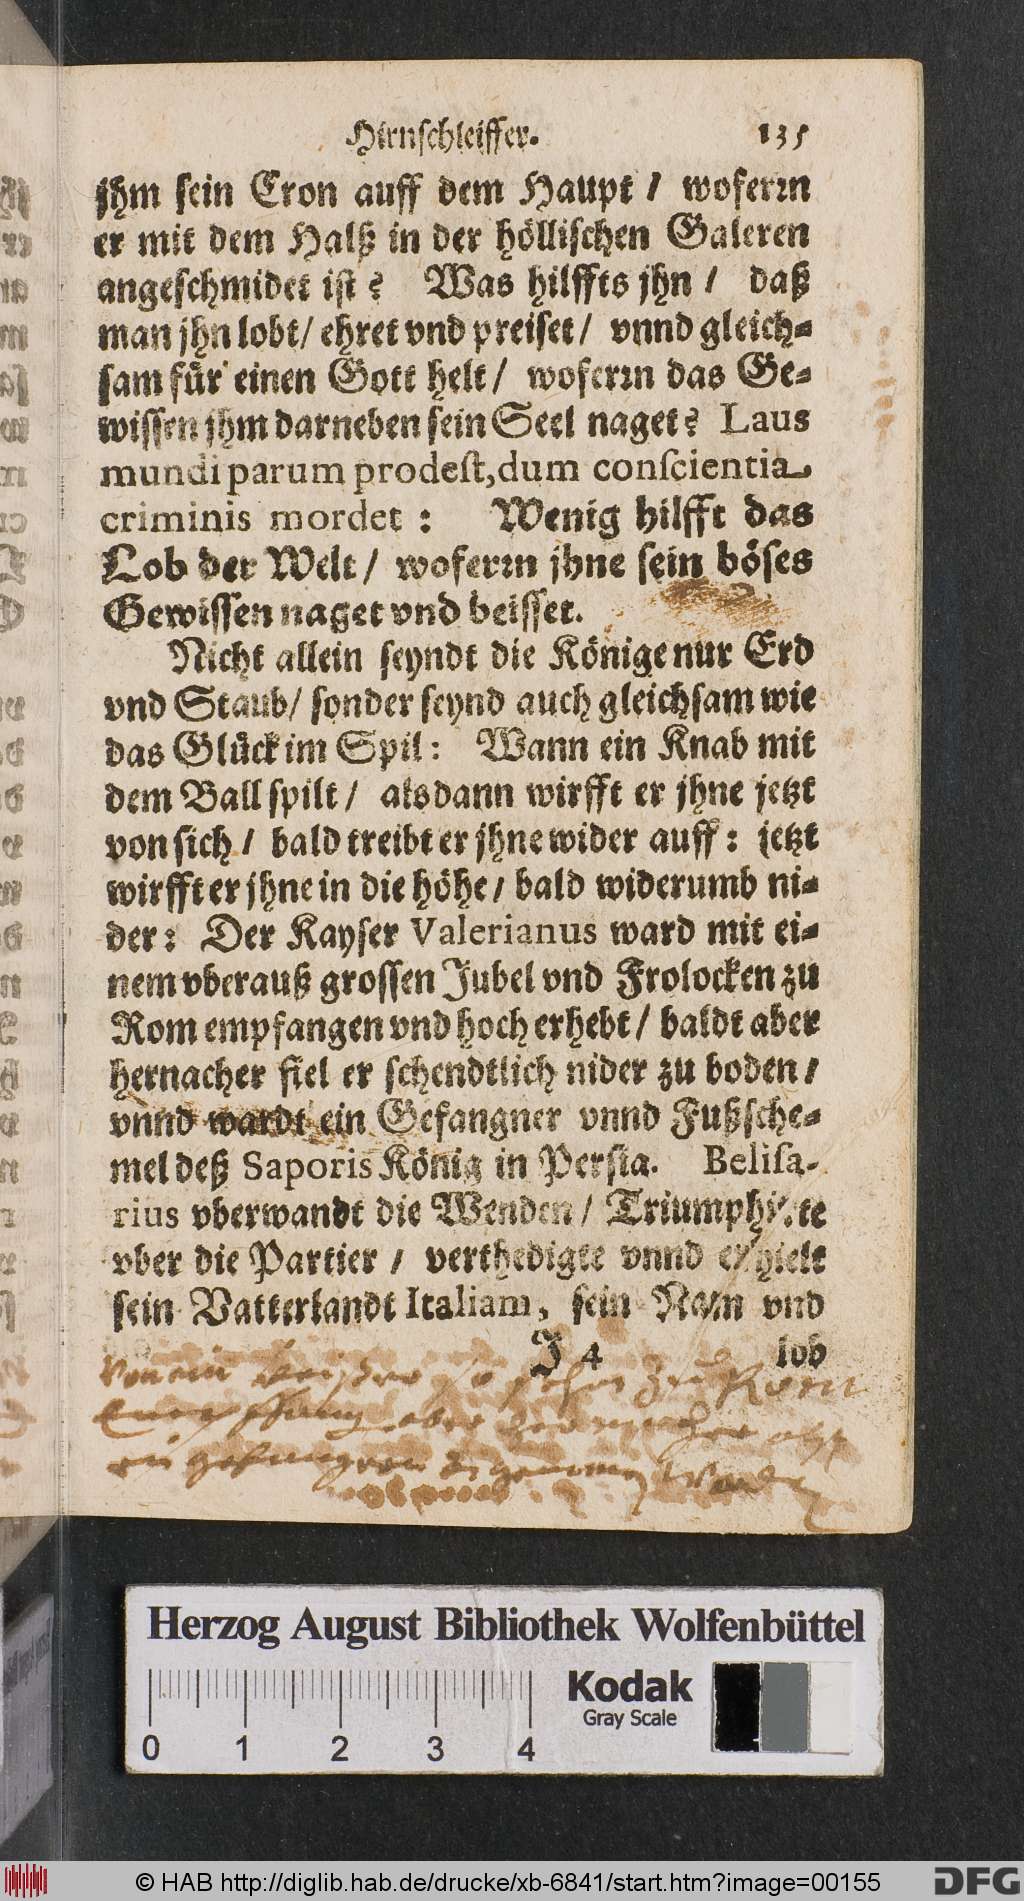 Hirnschleiffer. 135
jhm sein Cron auff dem Haupt / wofern
er mit dem Halß in der höllischen Galeren
angeschmidet ist? Was hilffts jhn / daß
man jhn lobt/ ehret vnd preiset/ vnnd gleich-
sam für einen Gott helt/ wofern das Ge-
wissen jhm darneben sein Seel naget? Laus
mundi parum prodest, dum conscientia
criminis mordet: Wenig hilfft das
Lob der Welt/ wofern jhne sein böses
Gewissen naget vnd beisset.
Nicht allein seyndt die Könige nur Erd
vnd Staub/ sonder seynd auch gleichsam wie
das Glück im Spil: Wann ein Knab mit
dem Ball spilt/ alsdann wirfft er jhne jetzt
von sich / bald treibt er jhne wider auff: jetzt
wirfft er jhne in die höhe/ bald widerumb ni-
der: Der Kayser Valerianus ward mit ei-
nem vberauß grossen Jubel vnd Frolocken zu
Rom empfangen vnd hoch erhebt/ baldt aber
hernacher fiel er schendtlich nider zu boden/
vnnd wardt ein Gefangner vnnd Fußsche-
mel deß Saporis König in Persia. Belisa-
rius vberwandt die Wenden/ Triumphirte
vber die Partier / verthedigte vnnd erhielt
sein Vatterlandt Italiam, sein Nam vnd
J 4 lob
Von ein Keißer so zu Rom
aber hernacher
ein gefangen worden
Herzog August Bibliothek Wolfenbüttel
Kodak
Gray Scale
0 1 2 3 4
© HAB http://diglib.hab.de/drucke/xb-6841/start.htm?image=00155
DFG